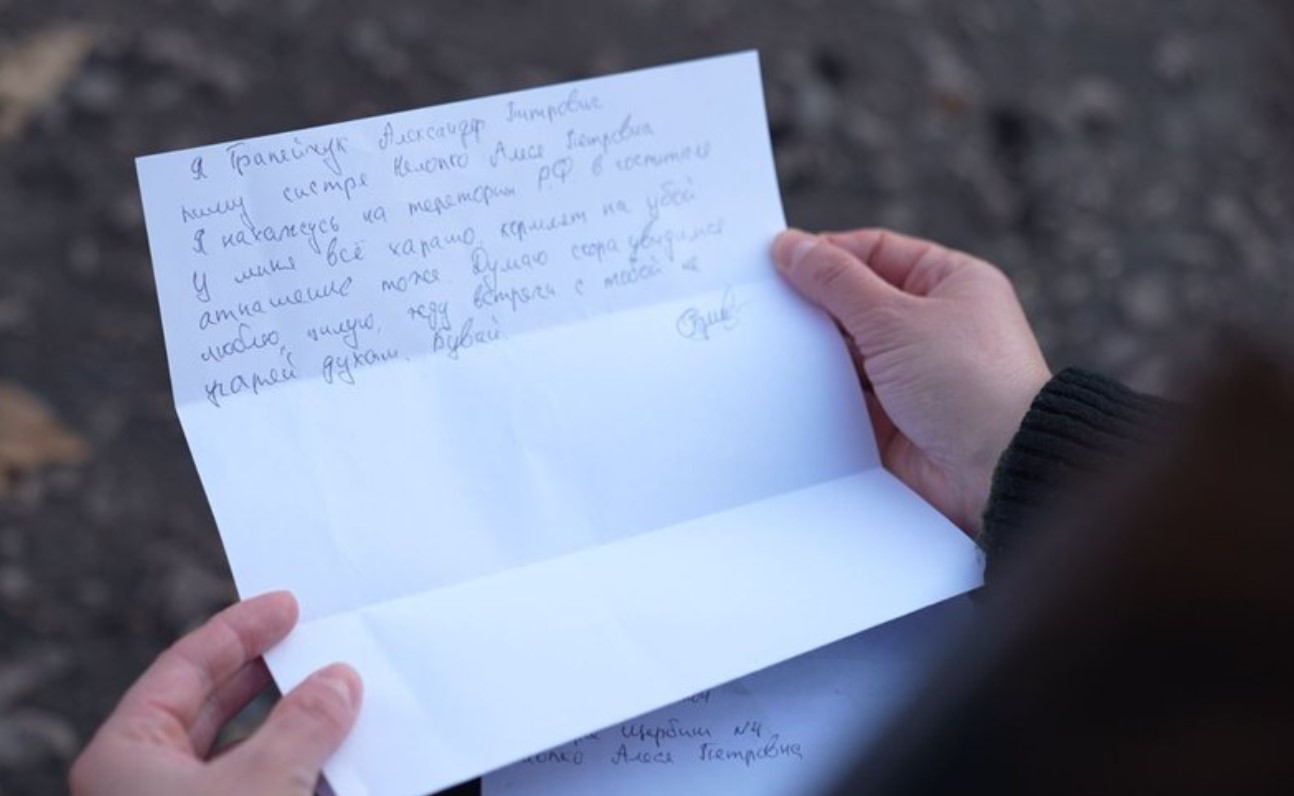 Я Трапейчук Александр Питрович
пишу систре Нелопко Алесе Петровна
Я нахажусь на територии РФ в госпитале
У миня всё харашо, кормлят на убой
атнашение тоже. Думаю скора увидимся
люблю, цилую, жду встречи с тобой не
угарай духам. Бувай.
Щербини №4
Алеся Петровна